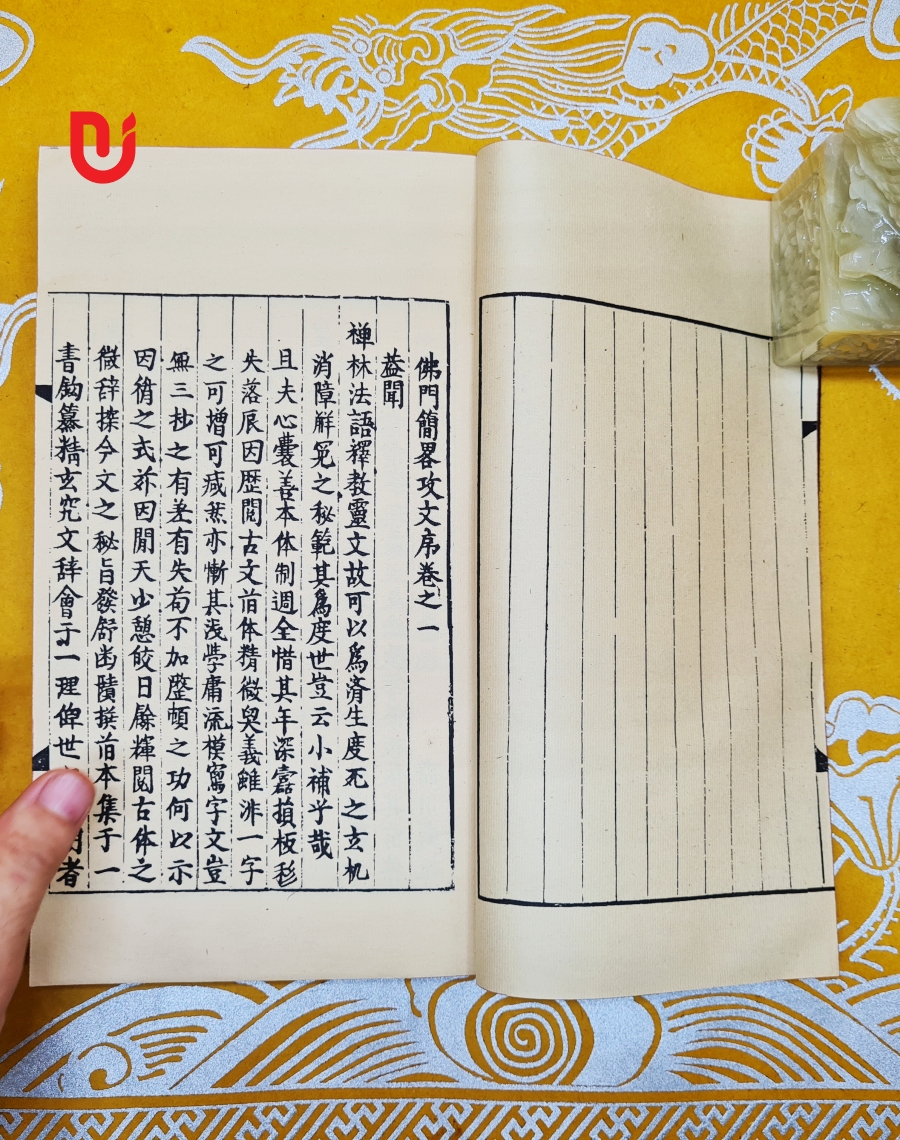 佛門簡畧攻文序卷之一
益聞
禅林法語釋教靈文故可以爲済生度死之玄机
消障解冤之秘範其爲度世豈云小補乎哉
且夫心囊善本体制週全惜其年深蠹損板移
失落辰因歴閲古文前体精微奥義雖非一字
之可增可减然亦慚其浅學庸流模寫字文豈
無三抄之有差有失苟不加整頓之功何以示
因循之式茲因閒天少憩皎日餘輝閲古体之
微辞探今文之秘旨發舒幽賾撰前本集于一
書鈎纂精玄究文辞會于一理俾世 者